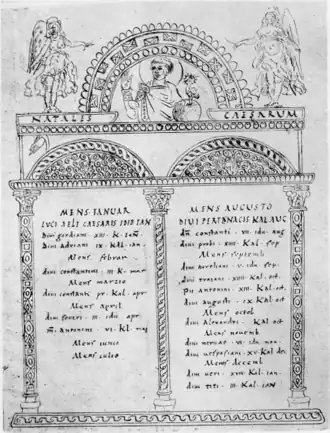 NATALES CAESARUM
MENS IANUAR
LUCI AELI CAESARIS IDIB IAN
Divi gordiani · XIII · K ·
Divi Adriani IX · Kal · ian ·
Mens februar
divi constantini · III · K · mar
Mens marzio
divi constantii · pr · Kal · apr
Mens april
divi severi · III · idu apr
M antonini · VI · kl maj
Mens iunio
Mens iulio
MENS AUGUSTO
DIVI PERTENACIS KAL AUG
constanti · VII · idu aug
divi probi · XIIII · Kal · sep
Mens septemb
divi aureliani · V · idu sep ·
divi traiani · XIIII · Kal · oct
pii antonini · XIII · Kal · oct
divi augusti · IX Kal oct
Mens octob
divi Alexandri · Kal oct
Mens novemb
divi nervae · VI · idu · nov
divi vespasiani · XV · Kal dec
Mens decemb
divi veri · XVIII Kal · ian ·
divi titi · III · Kal · IAN